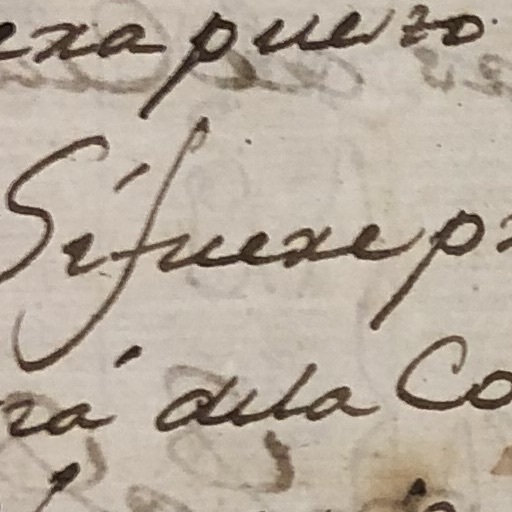 exa puerto
Si fuere pr
ra dela Co